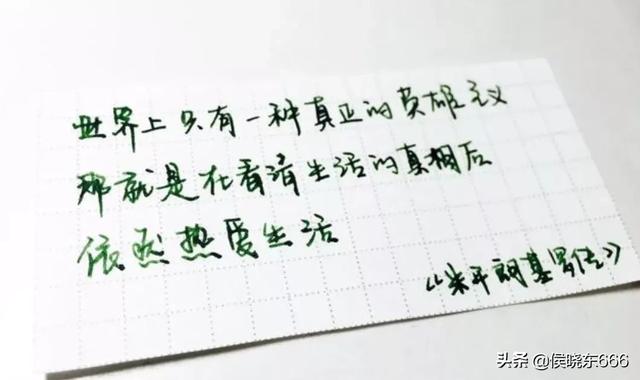 世界上只有一种真正的英雄主义
那就是在看清生活的真相后
依然热爱生活
《米开朗基罗传》
头条 @侯晓东666